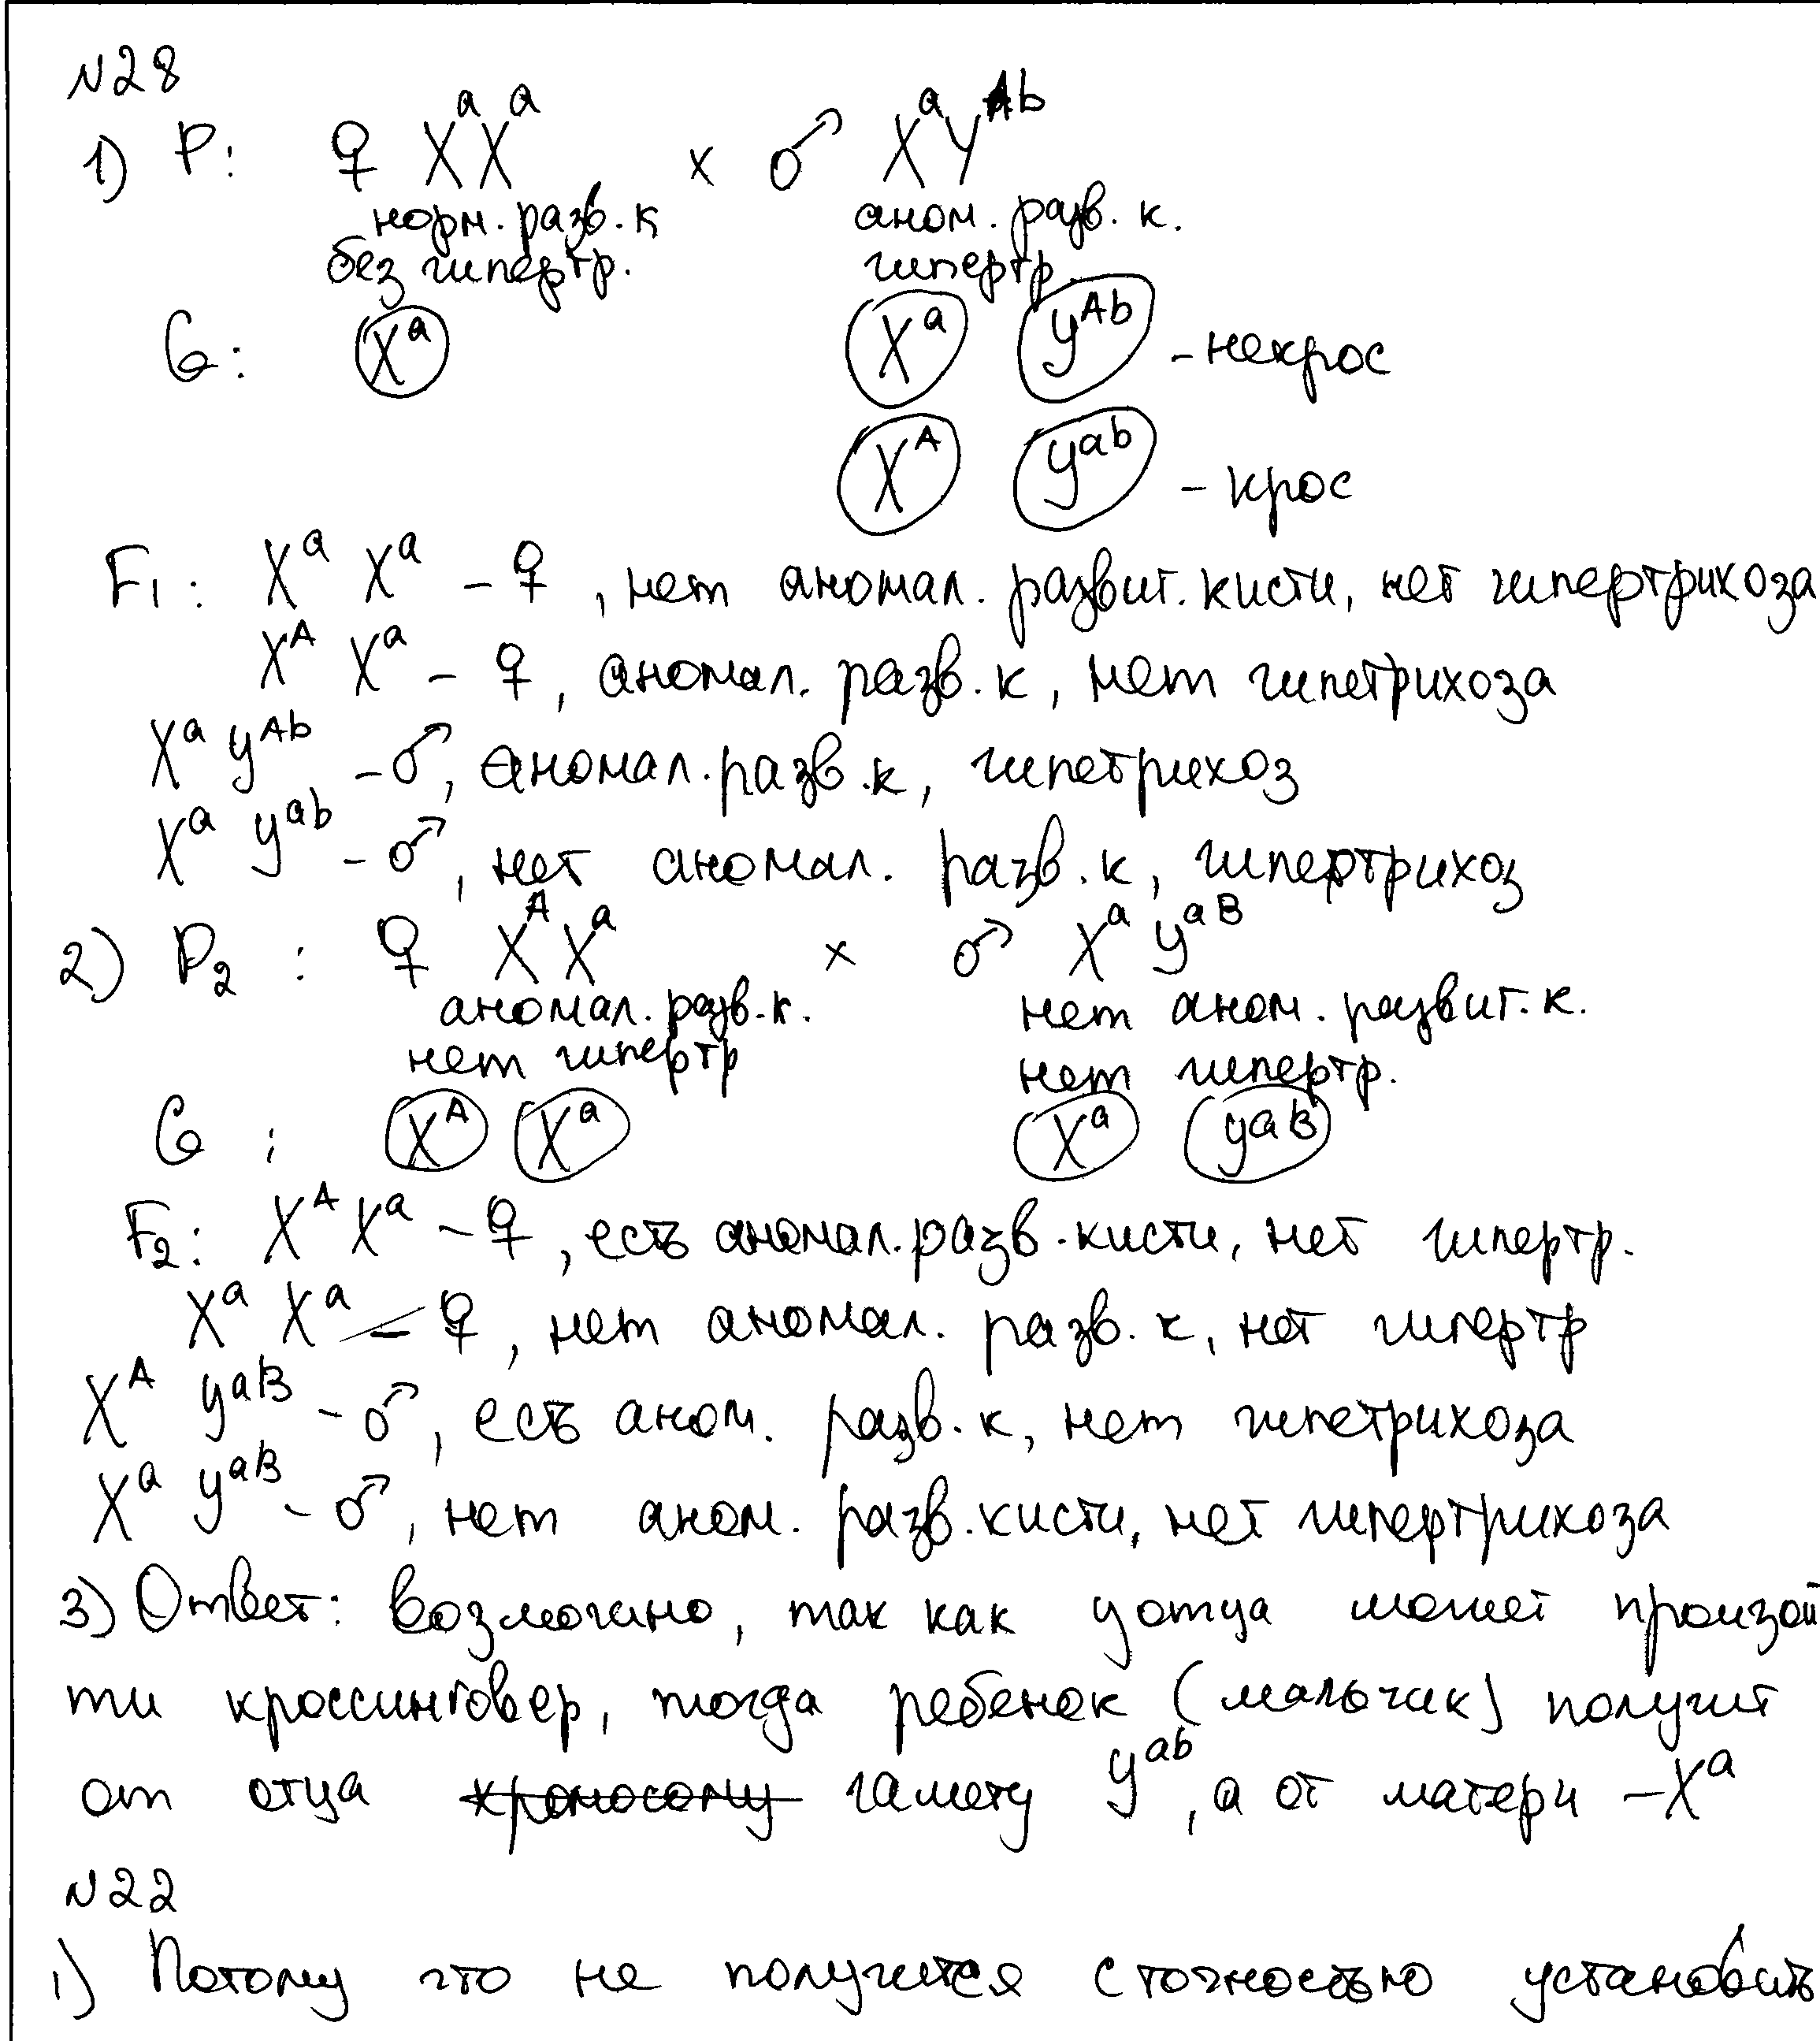 N28
1) P: ♀ XᵃXᵃ × ♂ XᵃYᴬᵇ
норм. разв. к аном. разв. к.
без гипертр. гипертр.
G: Xᵃ Xᵃ yᴬᵇ - некрос
Xᴬ yᵃᵇ - крос
F₁: Xᵃ Xᵃ - ♀, нет аномал. развит. кисти, нет гипертрихоза
Xᴬ Xᵃ - ♀, аномал. разв. к, нет гипетрихоза
Xᵃ yᴬᵇ - ♂, аномал. разв. к, гипетрихоз
Xᵃ yᵃᵇ - ♂, нет аномал. разв. к, гипертрихоз
2) P₂: ♀ XᴬXᵃ × ♂ Xᵃ yᵃᴮ
аномал. разв. к. нет аном. развит. к.
нет гипертр нет гипертр.
G: Xᴬ Xᵃ Xᵃ yᵃᴮ
F₂: Xᴬ Xᵃ - ♀, есть аномал. разв. кисти, нет гипертр.
Xᵃ Xᵃ - ♀, нет аномал. разв. к, нет гипертр
Xᴬ yᵃᴮ - ♂, есть аном. разв. к, нет гипетрихоза
Xᵃ yᵃᴮ - ♂, нет аном. разв. кисти, нет гипертрихоза
3) Ответ: возможно, так как у отца может произой
ти кроссинговер, тогда ребенок (мальчик) получит
от отца хромосому гамету yᵃᵇ, а от матери - Xᵃ
N22
1) Потому что не получится с точностью установить